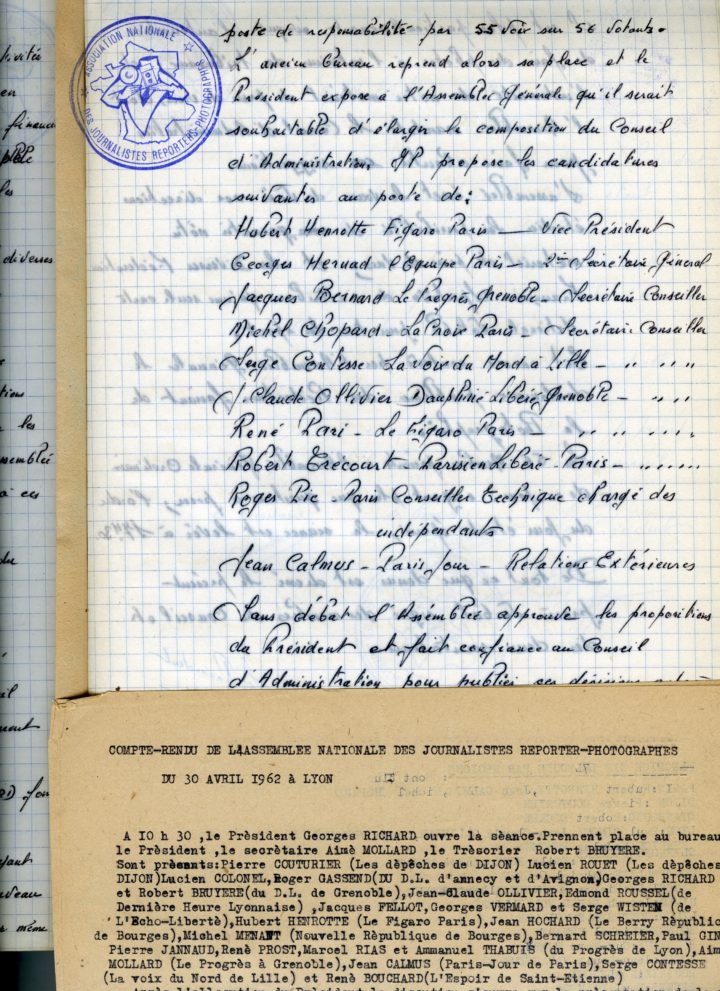 ASSOCIATION NATIONALE
DES JOURNALISTES REPORTERS PHOTOGRAPHES
poste de responsabilité par 55 voix sur 56 votants.
L'ancien bureau reprend alors sa place et le
Président expose à l'Assemblée Générale qu'il serait
souhaitable d'élargir la composition du Conseil
d'Administration, Il propose les candidatures
suivantes au poste de:
Hubert Henrotte Figaro Paris — Vice Président
Georges Hernad l'Equipe Paris — 2ème Secrétaire Général
Jacques Bernard Le Progrès Grenoble - Secrétaire Conseiller
Michel Chopard - La Croix Paris - Secrétaire Conseiller
Serge Contesse La Voix du Nord à Lille - " " "
J. Claude Ollivier Dauphiné Libéré, Grenoble - " "
René Pari - Le Figaro Paris - " " " "
Robert Trécourt - Parisien Libéré - Paris - " " "
Roger Pic - Paris Conseiller Technique chargé des
indépendants
Jean Calmus - Paris Jour - Relations Extérieures
Sans débat l'Assemblée approuve les propositions
du Président et fait confiance au Conseil
d'Administration pour publier ces décisions
COMPTE-RENDU DE L'ASSEMBLEE NATIONALE DES JOURNALISTES REPORTER-PHOTOGRAPHES
DU 30 AVRIL 1962 à LYON
A IO h 30 ,le Prèsident Georges RICHARD ouvre la sèance.Prennent place au bureau
le Prèsident ,le secrètaire Aimè MOLLARD ,le Trèsorier Robert BRUYERE.
Sont prèsents:Pierre COUTURIER (Les dèpêches de DIJON) Lucien ROUET (Les dèpêches
DIJON)Lucien COLONEL,Roger GASSEND(DU D.L. d'annecy et d'Avignon,Georges RICHARD
et Robert BRUYERE(du D.L. de Grenoble),Jean-Claude OLLIVIER,Edmond ROUSSEL(de
Dernière Heure Lyonnaise) ,Jacques FELLOT,Georges VERMARD et Serge WISTEM (de
L'Echo-Libertè),Hubert HENROTTE (Le Figaro Paris),Jean HOCHARD (Le Berry Rèpublic
de Bourges),Michel MENANT (Nouvelle Rèpublique de Bourges),Bernard SCHREIER,Paul GIN
Pierre JANNAUD,Renè PROST,Marcel RIAS et Ammanuel THABUIS (du Progrès de Lyon),Aim
MOLLARD (Le Progrès à Grenoble),Jean CALMUS (Paris-Jour de Paris),Serge CONTESSE
(La voix du Nord de Lille) et Renè BOUCHARD(L'Espoir de Saint-Etienne)